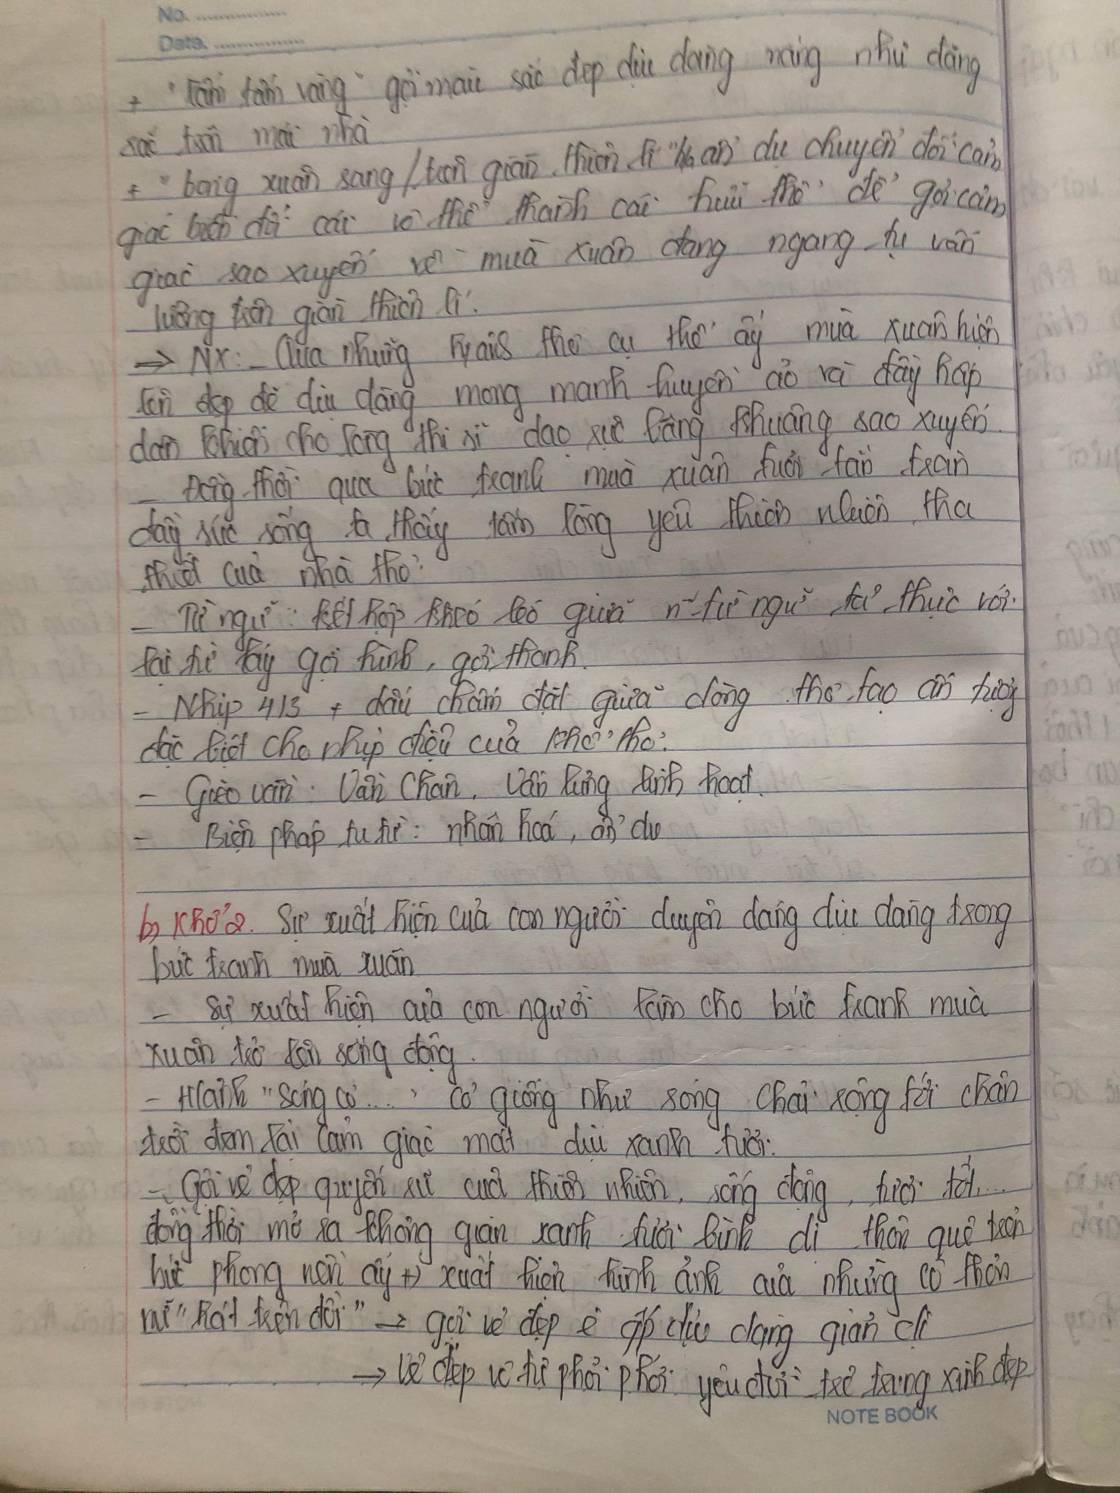 No. ................
Date. ................
+ "lấm tấm vàng" gợi màu sắc đẹp dịu dàng nắng như đang
sắc trên mái nhà
+ "bóng xuân sang/trên giàn thiên lí" ẩn dụ chuyển đổi cảm
giác biến đổi cái vô thể thành cái hữu thể để gợi cảm
giác sao xuyến về mùa xuân đang ngang tự vấn
lường trên giàn thiên lí.
→ NX: - Qua những thơ cụ thể ấy mùa xuân hiện
lên đẹp đẽ dịu dàng mong manh huyền ảo và đầy hấp
dẫn khiến cho lòng thi sĩ dạo xực bâng khuâng sao xuyến.
- Đồng thời qua bức tranh mùa xuân tươi tắn tràn
đầy sức sống ta thấy tấm lòng yêu thiên nhiên tha
thiết của nhà thơ.
- Từ ngữ: kết hợp khéo léo giữa từ ngữ tả thực với
lại từ láy gợi hình, gợi thanh.
- Nhịp 4/3 + dấu chấm đặt giữa dòng thơ tạo ấn tượng
đặc biệt cho nhịp điệu của khổ thơ.
- Gieo vần: Vần chân, vần lưng linh hoạt.
- Biện pháp tu từ: nhân hoá, ẩn dụ
b, Khổ 2. Sự xuất hiện của con người duyên dáng dịu dàng trong
bức tranh mùa xuân
- Sự xuất hiện của con người làm cho bức tranh mùa
xuân trở lên sống động.
- H/ảnh "Sóng cỏ...." cỏ giống như sóng chải rộng tới chân
trời đem lại cảm giác mát dịu xanh tươi.
- Gợi vẻ đẹp quyến rũ của thiên nhiên, sống động, tươi tốt....
đồng thời mở ra không gian xanh tươi bình dị thôn quê trên
bức phong nền ấy → xuất hiện hình ảnh của những cô thôn
nữ "hát trên đồi" → gợi vẻ đẹp e ấp dịu dàng giản dị
→ vẻ đẹp vô tư phơi phới yêu đời trẻ trung xinh đẹp
NOTE BOOK